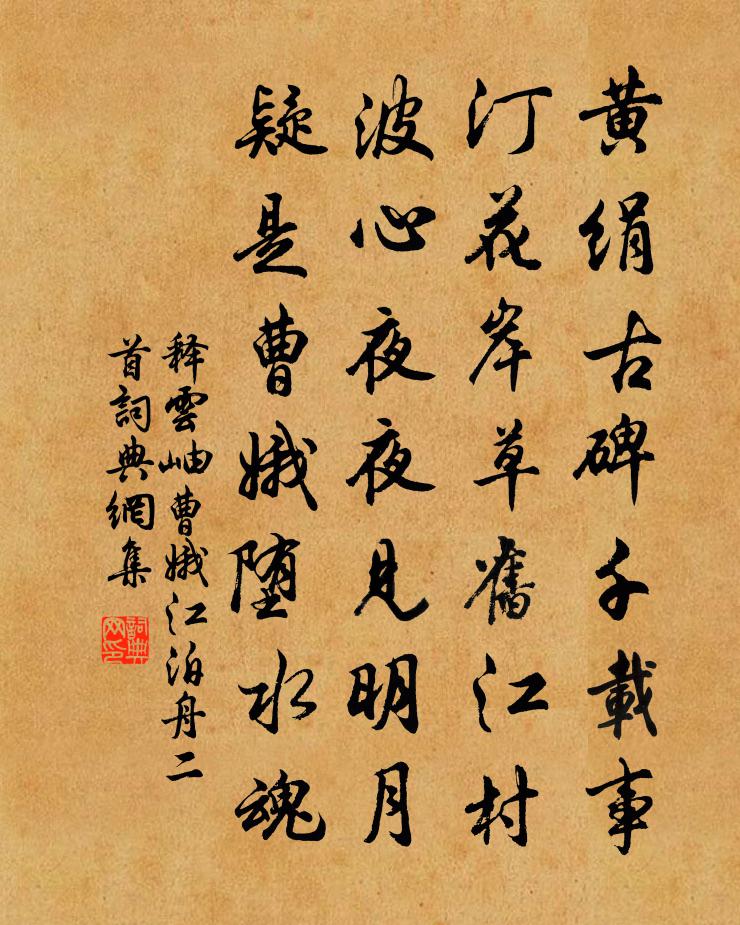 黄絹古碑千載事
汀花岸草舊江村
波心夜夜見明月
疑是曹娥堕水魂
释雲岫曹娥江泊舟二
首詞典網集
詞典網印